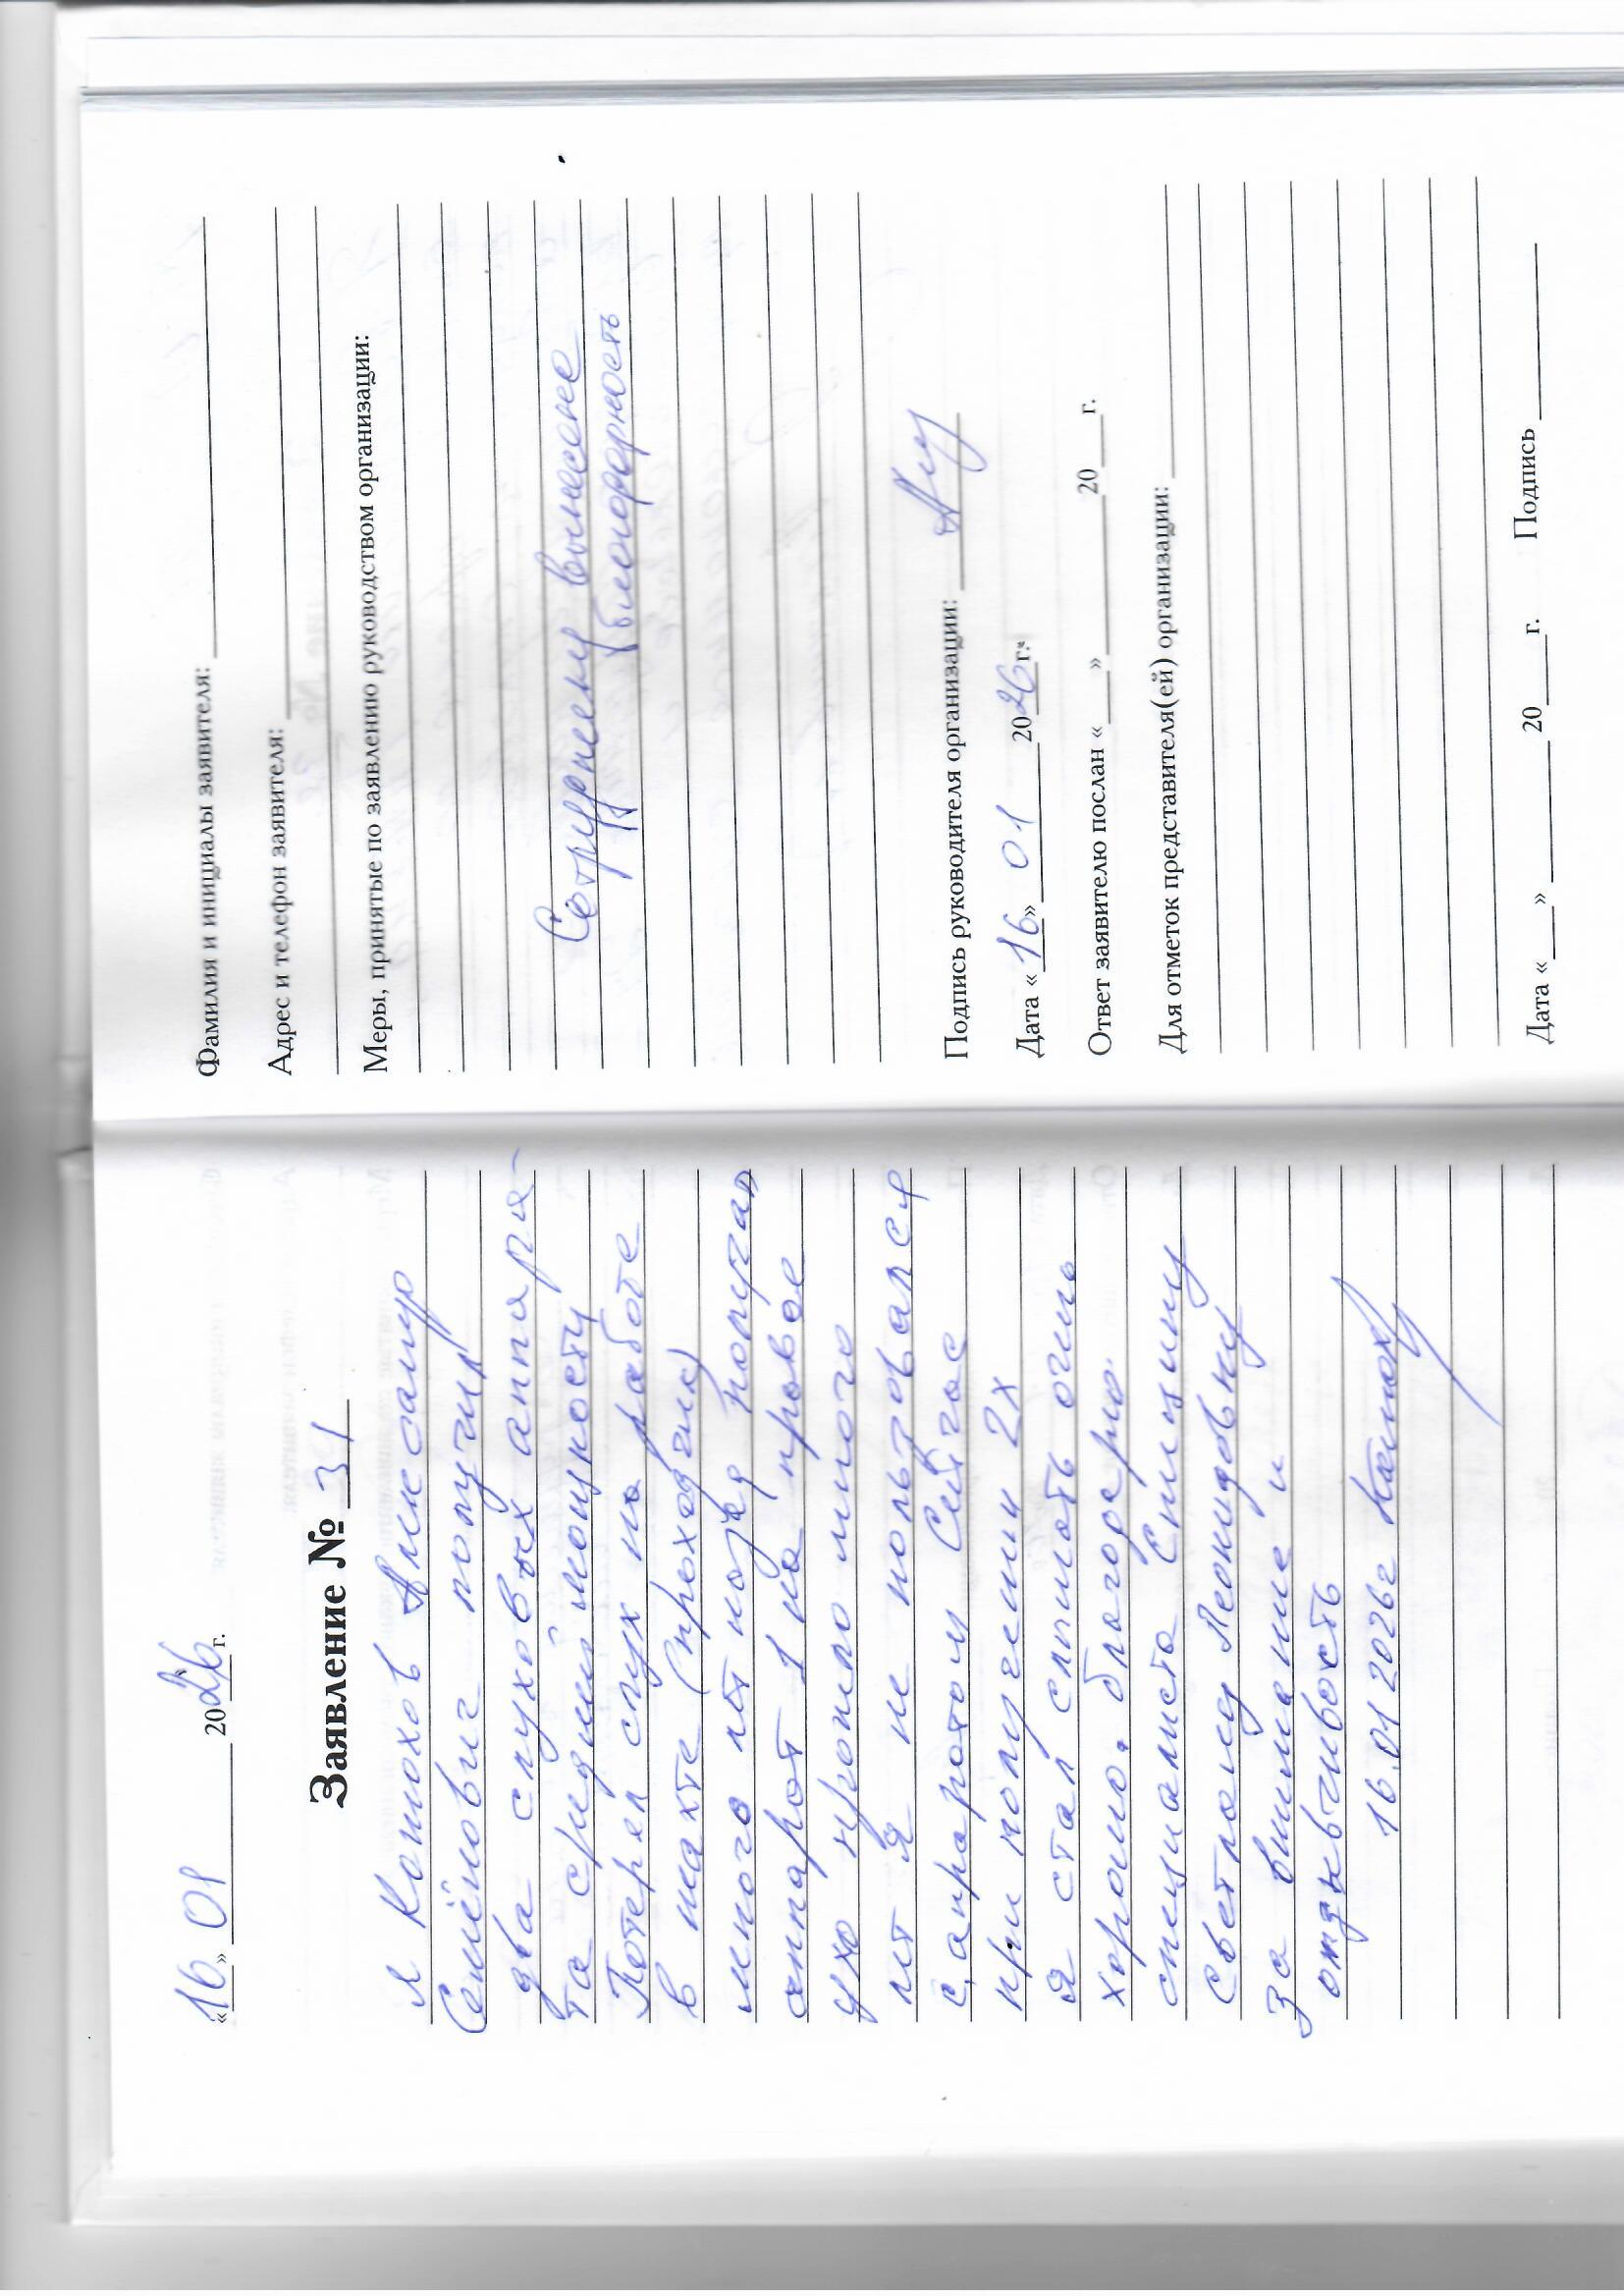 «16» 01 2026 г.
Заявление № 31
я Котохов Александр
Семёнович получил
два слуховых аппара-
та средней мощности
Потерял слух на работе
в шахте (проходчик)
много лет назад получал
аппарат 1 на правое
ухо прошло много
лет я не пользовался
с, апаратом Сейчас
при получении 2х
я стал слышать очень
хорошо. благодарю
специалиста
Светлану Леонидовну
за внимание и
отзывчивость
16.01 2026г
Фамилия и инициалы заявителя:
Адрес и телефон заявителя:
Меры, принятые по заявлению руководством организации:
Сотруднику вынесене
благодарность
Подпись руководителя организации:
Дата «16» 01 2026 г.
Ответ заявителю послан «___» ______ 20___ г.
Для отметок представителя(ей) организации:
Дата «___» ______ 20___ г. Подпись ______